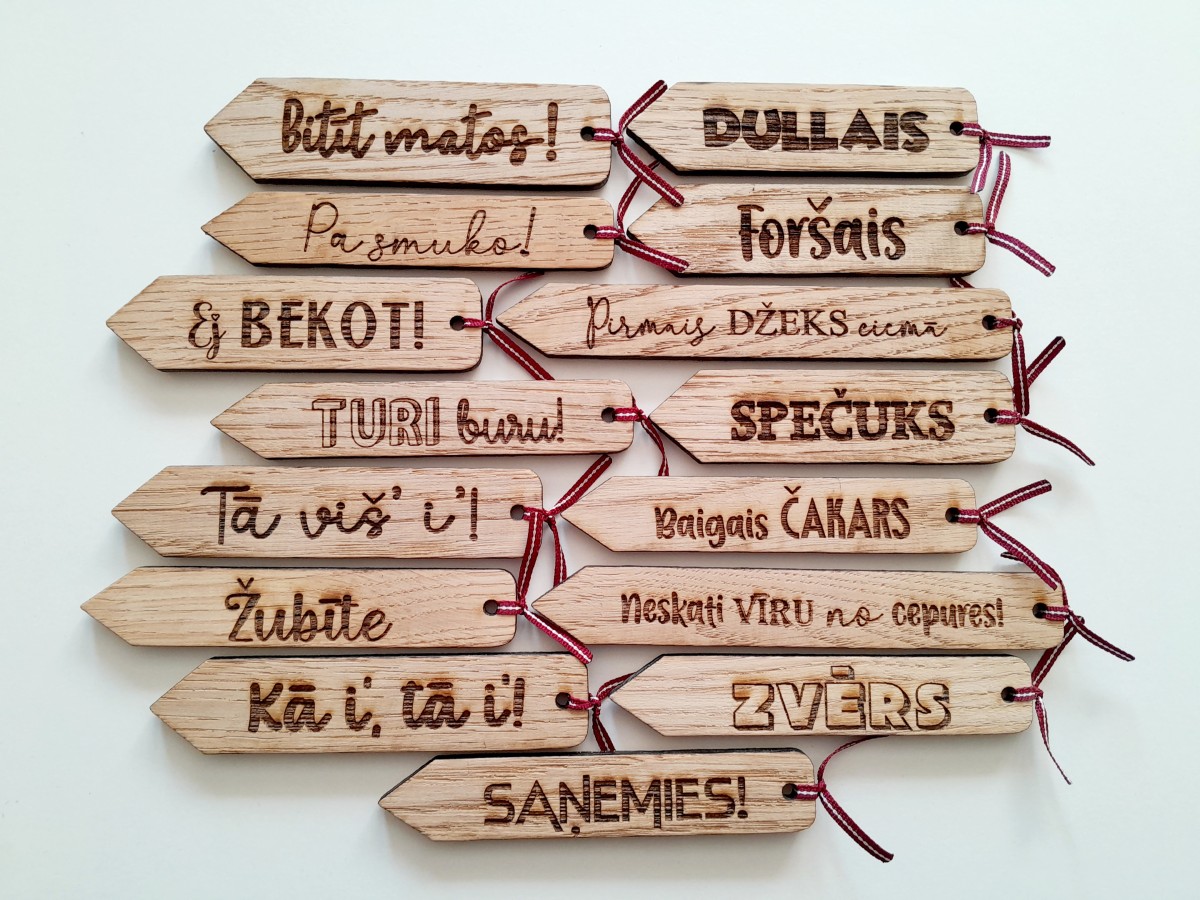 Bitīt matos!
DULLAIS
Pa smuko!
Foršais
Ej BEKOT!
Pirmais DŽEKS ciemā
TURI buru!
SPEČUKS
Tā viš' i'!
Baigais ČAKARS
Žubīte
Neskati VĪRU no cepures!
Kā i', tā i'!
ZVĒRS
SAŅEMIES!